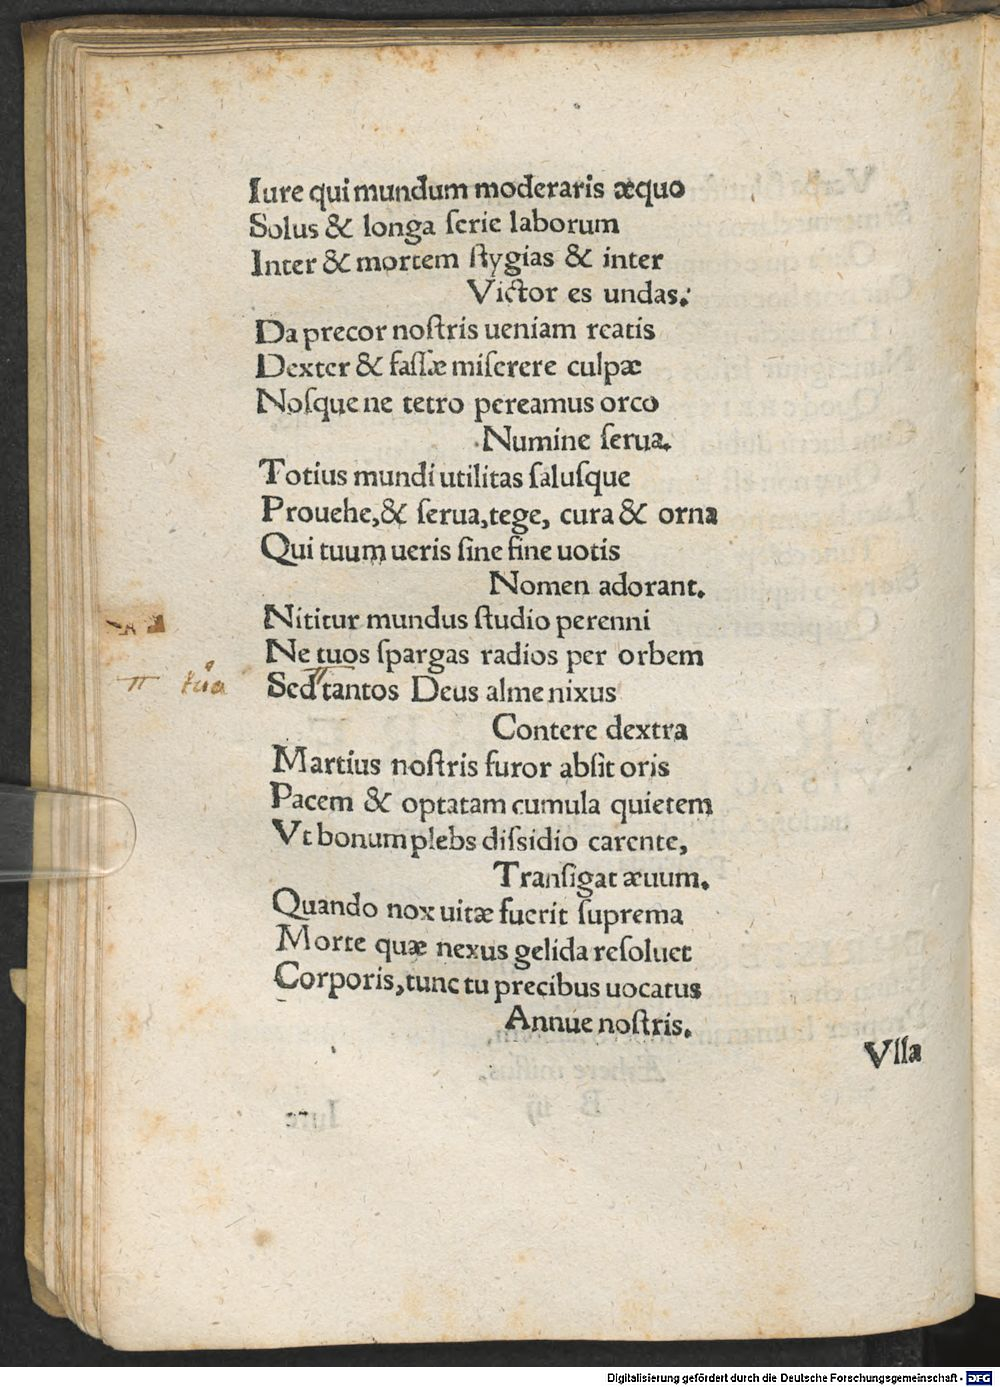 Iure qui mundum moderaris æquo
Solus & longa ſerie laborum
Inter & mortem ſtygias & inter
Victor es undas.
Da precor noſtris ueniam reatis
Dexter & faſſæ miſerere culpæ
Noſque ne tetro pereamus orco
Numine ſerua.
Totius mundi utilitas ſaluſque
Prouehe,& ſerua,tege, cura & orna
Qui tuum ueris ſine fine uotis
Nomen adorant.
Nititur mundus ſtudio perenni
Ne tuos ſpargas radios per orbem
tua
Sed tantos Deus alme nixus
Contere dextra
Martius noſtris furor abſit oris
Pacem & optatam cumula quietem
Vt bonum plebs diſsidio carente,
Tranſigat æuum.
Quando nox uitæ fuerit ſuprema
Morte quæ nexus gelida reſoluet
Corporis,tunc tu precibus uocatus
Annue noſtris.
Vlla
Digitalisierung gefördert durch die Deutsche Forschungsgemeinschaft - DFG